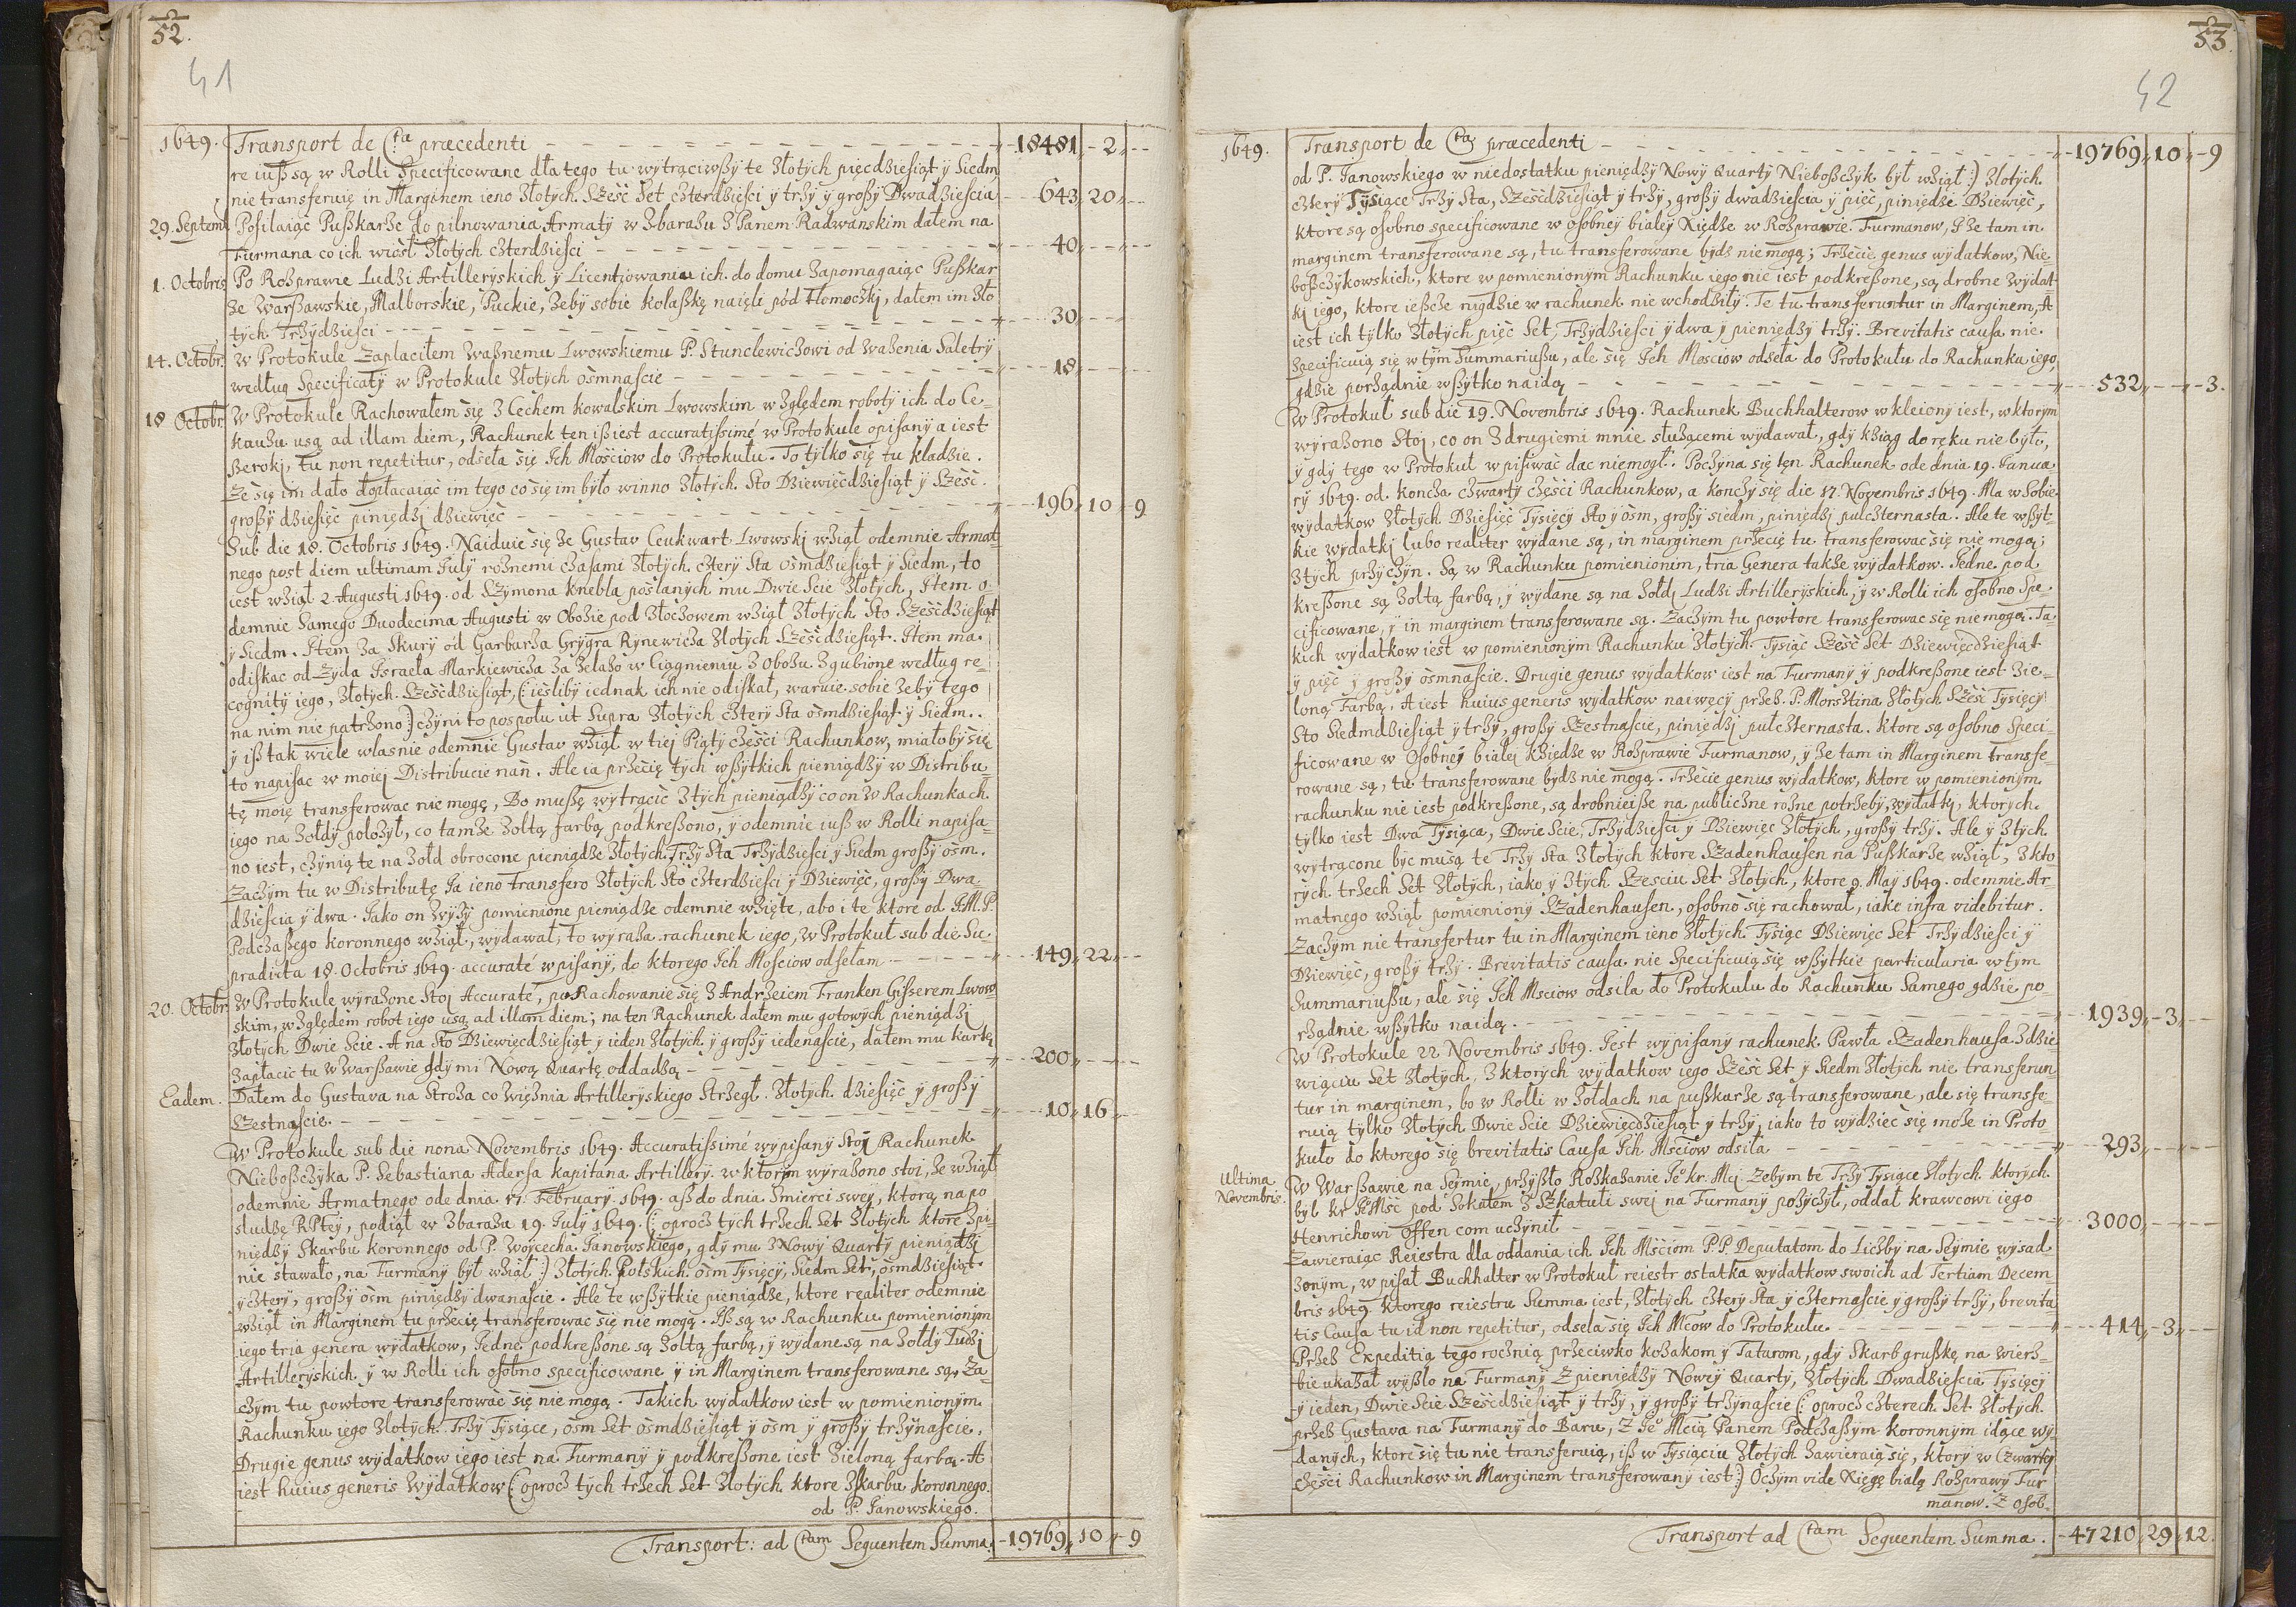 52.
41
1649. Transport de Cta præcedenti 18481 2
re iuß są w Rolli Specificowane dla tego tu wytrąciwßy te Złotych pięcdzieśiąt y Siedm
nie transferuię in Marginem ieno Złotych Sześć Set czterdzieści y trzy y großy Dwadzieścia 643 20
29. Septemb. Posilaiąc Pußkarze do pilnowania Armaty w Zbarażu z Panem Radwanskim dałem na
Furmana co ich wiosł Złotych czterdzieści 40
1. Octobris Po Rozprawie Ludzi Artilleryskich y Licentiowaniu ich do domu zapomagaiąc Pußkar
ze Warßawskie, Malborskie, Puckie, żeby sobie kolaßkę naięli pod Tłomoczkj, dałem im Zło
tych Trzydzieści 30
14. Octobr. W Protokule Zapłaciłem Ważnemu Lwowskiemu P. Stunclewiczowi od Ważenia Saletry
według Specificaty w Protokule Złotych ośmnaście 18
18 Octobr. W Protokule Rachowałem się z Cechem kowalskim Lwowskim względem roboty ich do Ce-
kauzu usq ad illam diem, Rachunek ten iß iest accuratissimé w Protokule opisany a iest
ßerokj, tu non repetitur, odseła się Ich Mościow do Protokułu. To tylko się tu kladzie.
Że się im dało dopłacaiąc im tego co się im było winno Złotych Sto Dziewiećdzieśiąt y Sześć
großy dzieśięć piniędzj dziewięć 196 10 9
Sub die 18. Octobris 1649. Naiduie się że Gustav Ceukwart Lwowskj wziął odemnie Armat-
nego post diem ultimam July rożnemi czasami Złotych cztery Sta ośmdzieśiąt y Siedm, to
iest wziął 2. Augusti 1649. od Szymona knebla posłanych mu Dwie Scie Złotych, Item o-
demnie Samego Duodecima Augusti w Obozie pod Złoczowem wziął Złotych Sto Sześćdzieśiąt
y Siedm. Item za Skury od Garbarza Grygra Rynewicza Złotych Sześćdzieśiąt. Item ma
odiskac od Żyda Israela Markiewicza za żelazo w Ciągnieniu z Obozu zgubione według re-
cognity iego, Złotych Sześćdzieśiąt, (: iesliby iednak ich nie odiskał, waruie sobie żeby tego
na nim nie patrzono :) czyni to pospołu ut Supra Złotych cztery Sta ośmdzieśiąt y Siedm.
y iß tak wiele własnie odemnie Gustav wziął w tiej Piąty części Rachunkow, miałoby się
to napisac w moiej Distribucie nań. Ale ia przecię tych wßytkich pieniądzy w Distribu-
tę moię transferowac nie mogę, Bo mußę wytrącic z tych pieniądzy co on w Rachunkach
iego na żołdy położył, co tamże żołtą farbą podkreßono, y odemnie iuß w Rolli napisa-
no iest, czynią te na żołd obrocone pieniądze Złotych Trzy Sta Trzydzieści y Siedm großy ośm.
Zaczym tu w Distributę Ia ieno transfero Złotych Sto czterdzieści y Dziewięć, großy Dwa-
dzieścia y dwa. Iako on wyży pomienione pieniądze odemnie wzięte, abo i te ktore od I.M.P.
Podczaßego koronnego wziął, wydawał, to wyraża rachunek iego, w Protokuł sub die Su-
pradicta 18 Octobris 1649 accuraté wpisany, do ktorego Ich Mościow odsełam 149 22
20. Octobr. W Protokule wyrażone Stoj Accuraté, po Rachowanie się z Andrzeiem Franken Gisserem Lwow-
skim, względem robot iego usq ad illam diem; na ten Rachunek dałem mu gotowych pieniądzj
Złotych Dwie Scie. A na Sto Dziewięcdzieśiąt y ieden Złotych y großy iedenaście, dałem mu kartę
zapłacic tu w Warßawie gdy mi Nową Quartę oddadzą 200
Eadem. Dałem do Gustava na Stroża co więźnia Artilleryskiego Strzegł. Złotych dzieśięć y großy
Szestnaście. 10 16
W Protokule sub die nona Novembris 1649. Accuratissimé wypisany Stoj Rachunek
Nieboßczyka P. Sebastiana Adersa kapitana Artillery. w ktorym wyrażono stoi, że wziął
odemnie Armatnego ode dnia 17. February 1649. aß do dnia Śmierci swey, ktorą na po
słudze RPtej, podiął w Zbarażu 19. July 1649. (: oprocz tych trzech Set Złotych ktore z pi-
niędzy Skarbu koronnego od P. Woycecha Ianowskiego, gdy mu z Nowy Quarty pieniądzj
nie stawało, na Furmany był wziął :) Złotych Polskich ośm Tysięcy, Siedm Set, ośmdzieśiąt
y cztery, großy ośm piniędzy dwanaście. Ale te wßytkie pieniądze, ktore realiter odemnie
wziął in Marginem tu przecię transferowac się nie mogą. Iß są w Rachunku pomienionym
iego tria genera wydatkow, Iedne podkreßone są żołtą farbą, y wydane są na żołdy Ludzj
Artilleryskich y w Rolli ich osobno specificowane y in Marginem transferowane są, Za-
czym tu powtore transferowac się nie mogą. Takich wydatkow iest w pomienionym
Rachunku iego Złotych Trzy Tysiące, ośm Set ośmdzieśiąt y ośm y großy trzynaście,
Drugie genus wydatkow iego iest na Furmany y podkreßone iest Zieloną farbą. A
iest huius generis Wydatkow (: oprocz tych trzech Set Złotych ktore z Skarbu koronnego
od P. Ianowskiego.
Transport: ad Ctam Sequentem Summa. 19769 10 9
53.
42
1649. Transport de Cta præcedenti 19769 10 9
od P. Ianowskiego w niedostatku pieniędzy Nowy Quarty Nieboßczyk był wziął :) Złotych
cztery Tysiące Trzy Sta, Sześćdzieśiąt y trzy, großy dwadzieścia y pięć, piniędze Dziewięć,
ktore są osobno specificowane w osobney białey Xiędze w Rozprawie Furmanow, Iże tam in
marginem transferowane są, tu transferowane bydz nie mogą; Trzecie genus wydatkow, Nie-
boßczykowskich, ktore w pomienionym Rachunku iego nie iest podkreßone, są drobne wydat-
kj iego, ktore ießcze nigdzie w rachunek nie wchodziły. Te tu transferuntur in Marginem, A
iest ich tylko Złotych pięć Set, Trzydzieści y dwa y pieniędzy trzy. Brevitatis causa nie
Specificuią się w tym Summariußu, ale się Ich Mosciow odseła do Protokułu do Rachunku iego,
gdzie porządnie wßytko naidą 532 3.
W Protokuł sub die 19. Novembris 1649. Rachunek Buchhalterow wkleiony iest, w ktorym
wyrażono Stoj, co on z drugiemi mnie służącemi wydawał, gdy kziąg do ręku nie było,
y gdy tego w Protokuł wpisiwac dac niemogł. Poczyna się ten Rachunek ode dnia 19. Janua
ry 1649. od koncza czwarty części Rachunkow, a konczy się die 17. Novembris 1649. Ma w Sobie
wydatkow Złotych Dzieśięć Tysięcy Sto y ośm, großy siedm, piniędzj pułczternasta. Ale te wßyt-
kie wydatkj lubo realiter wydane są, in marginem przecię tu transferowac się nie mogą;
z tych przyczyn. Są w Rachunku pomienionim, tria Genera także wydatkow. Iedne pod-
kreßone są żołtą farbą, y wydane są na żołdj Ludzi Artilleryskich, y w Rolli ich osobno Spe-
cificowane, y in marginem transferowane są. Zaczym tu powtore transferowac się nie mogą. Ta-
kich wydatkow iest w pomienionym Rachunku Złotych Tysiąc Sześć Set Dziewięćdzieśiąt
y pięć y großy ośmnaście. Drugie genus wydatkow iest na Furmany y podkreßone iest Zie-
loną Farbą, A iest huius generis wydatkow naiwęcy przez P. Morsztina Złotych Sześć Tysięcy
Sto Siedmdzieśiąt y trzy, großy Szestnaście, piniędzj pułczternasta. ktore są osobno Speci-
ficowane w Osobney białej kziędze w Rozprawie Furmanow, y że tam in Marginem transfe-
rowane są, tu transferowane bydź nie mogą. Trzecie genus wydatkow, ktore w pomienionym
rachunku nie iest podkreßone, są drobnieiße na publiczne rożne potrzeby, wydatkj, ktorych
tylko iest Dwa Tysiąca, Dwie Scie, Trzydzieści y Dziewięc Złotych, großy trzy. Ale y z tych
wytrącone byc mußą te Trzy Sta Złotych ktore Szadenhausen na Pußkarze wziął, z kto
rych trzech Set Złotych, iako y z tych Szesciu Set Złotych, ktore 9. May 1649. odemnie Ar-
matnego wziął pomieniony Szadenhausen, osobno się rachował, iako infra videbitur.
Zaczym nie transfertur tu in Marginem ieno Złotych Tysiąc Dziewięc Set Trzydzieści y
Dziewięć, großy trzy. Brevitatis causa nie Specificuią się wßytkie particularia w tym
Summariußu, ale się Ich Msciow odsila do Protokulu do Rachunku Samego gdzie po-
rządnie wßytko naidą. 1939 3
W Protokule 22 Novembris 1649. Iest wypisany rachunek Pawła Szadenhausa z dzie-
więciu Set Złotych, z ktorych wydatkow iego Sześć Set y Siedm Złotych nie transferun-
tur in marginem, bo w Rolli w żołdach na pußkarze są transferowane, ale się transfe-
ruią tylko Złotych Dwie Scie Dziewięćdzieśiąt y trzy, iako to wydzieć się może in Proto
kuło do ktorego się brevitatis Causa Ich Msciow odsiła 293
Ultima Novembris. W Warßawie na Seymie, przyßło Rozkazanie Ie° kr. Mci Zebym te Trzy Tysiące Złotych ktorych
był kr. IeMść pod Sokalem z Szkatuli swej na Furmany pożyczył, oddał krawcowi iego
Henrichowi Offen com uczynił 3000
Zawieraiąc Reiestra dla oddania ich Ich Mściom P.P. Deputatom do Liczby na Seymie wysad
zonym, wpisał Buchhalter w Protokuł reiestr ostatka wydatkow swoich ad Tertiam Decem-
bris 1649 ktorego reiestru Summa iest, Złotych cztery Sta y czternaście y großy trzy, brevita-
tis Causa tu id non repetitur, odsela się Ich Mcow do Protokułu. 414 3
Przez Expeditią tegorocznią przeciwko kozakom y Tatarom, gdy Skarb grußkę na wierz-
bie ukazał wyßło na Furmany z pieniędzy Nowey Quarty, Złotych Dwadzieścia Tysięcy
y ieden, Dwie Scie Sześćdzieśiąt y trzy, y großy trzynaście (: oprocz czterech Set Złotych
przez Gustava na Furmany do Baru, z Ie° Mcią Panem Podczaßym koronnym idące wy-
danych, ktore się tu nie transferuią, iß w Tysiąciu Złotych zawieraią się, ktory w Czwarty
części Rachunkow in Marginem transferowany iest :) Oczym vide Xięgę białą Rozprawy Fur
manow. z osob-
Transport ad Ctam Sequentem Summa. 47210 29 12.